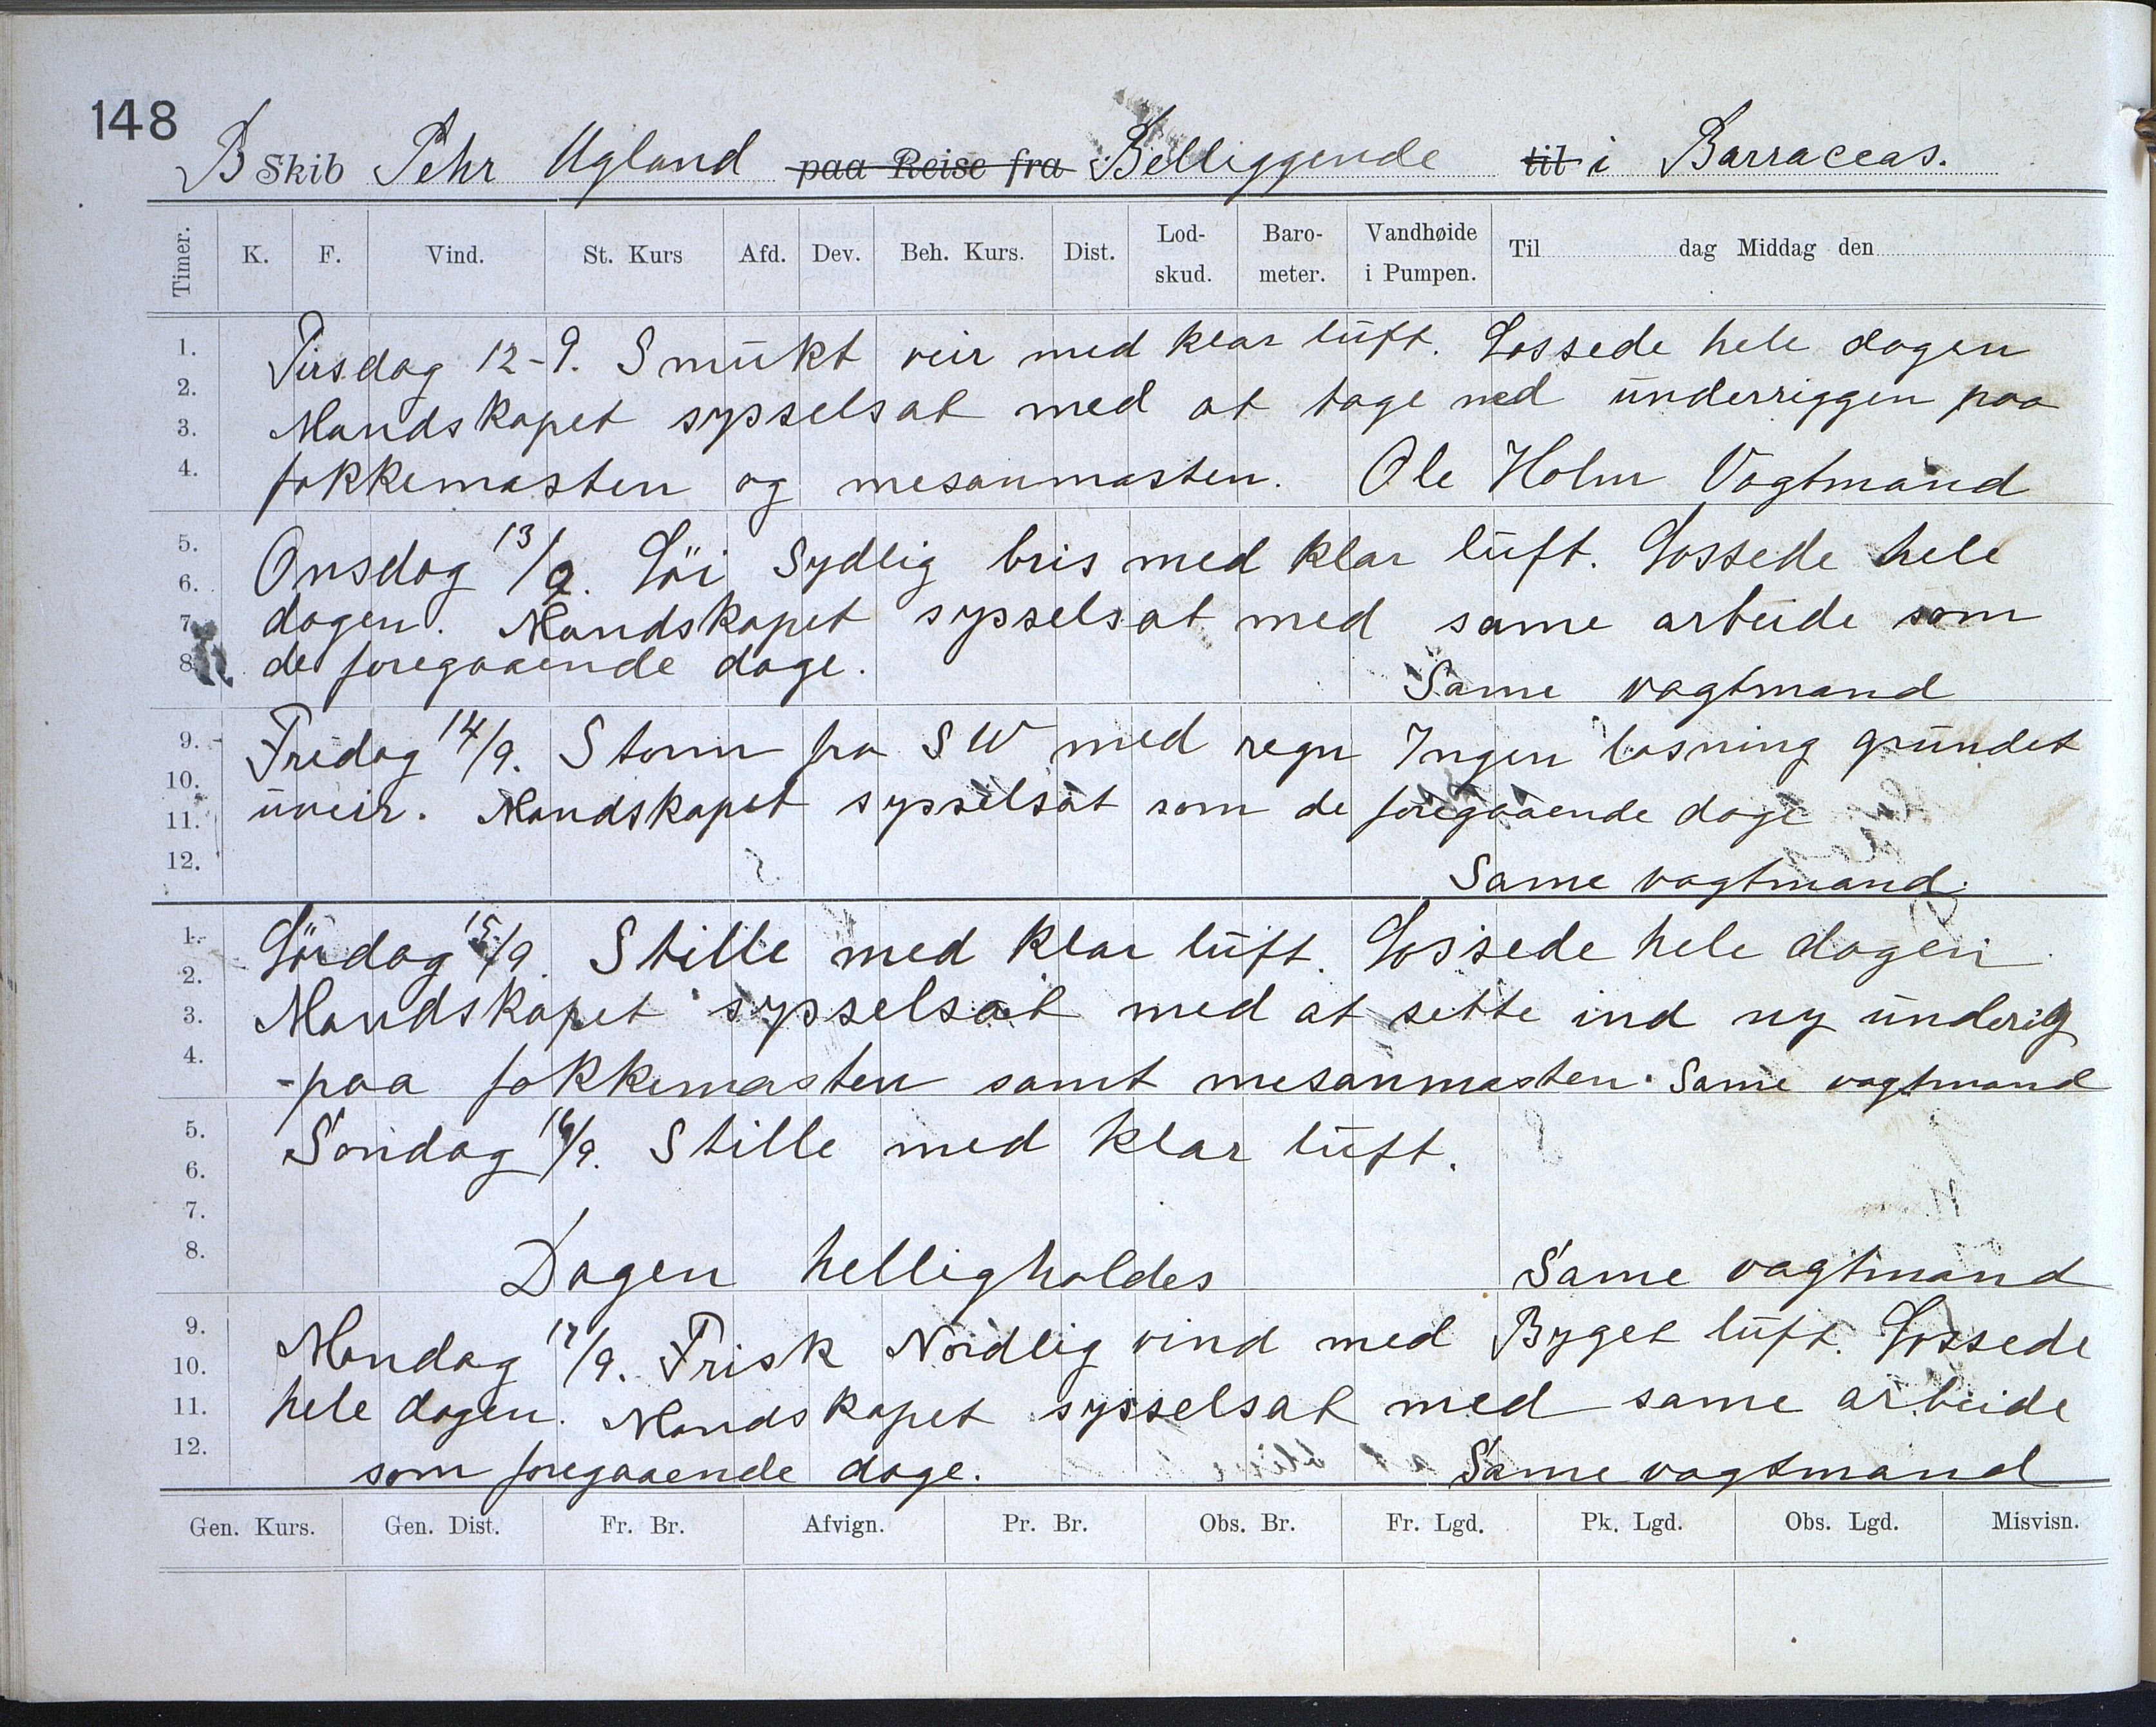 148
B Skib Pehr Ugland paa Reise fra Belliggende til i Barraceas.
Timer. K. F. Vind. St. Kurs Afd. Dev. Beh. Kurs. Dist. Lod-skud. Baro-meter. Vandhøide i Pumpen. Til dag Middag den
1.
2.
3.
4.
Tirsdag 12-9. Smukt veir med klar luft. Lossede hele dagen
Mandskapet sysselsat med at tage ned underriggen paa
fokkemasten og mesanmasten. Ole Holm Vagtmand
5.
6.
7.
8.
Onsdag 13/9. Löi Sydlig bris med klar luft. Lossede hele
dagen. Mandskapet sysselsat med same arbeide som
de foregaaende dage.
Same vagtmand
9.
10.
11.
12.
Fredag 14/9. Storm fra SW med regn Ingen losning grundet
uveir. Mandskapet sysselsat som de foregaaende dage
Same vagtmand.
1.
2.
3.
4.
Lördag 15/9. Stille med klar luft. Lossede hele dagen
Mandskapet sysselsat med at sette ind ny underig
paa fokkemasten samt mesanmasten. Same vagtmand
5.
6.
7.
8.
Sondag 16/9. Stille med klar luft.
Dagen helligholdes Same vagtmand
9.
10.
11.
12.
Mandag 17/9. Frisk Nordlig vind med Byget luft. Lossede
hele dagen. Mandskapet sysselsat med same arbeide
som foregaaende dage. Same vagtmand
Gen. Kurs. Gen. Dist. Fr. Br. Afvign. Pr. Br. Obs. Br. Fr. Lgd. Pk. Lgd. Obs. Lgd. Misvisn.